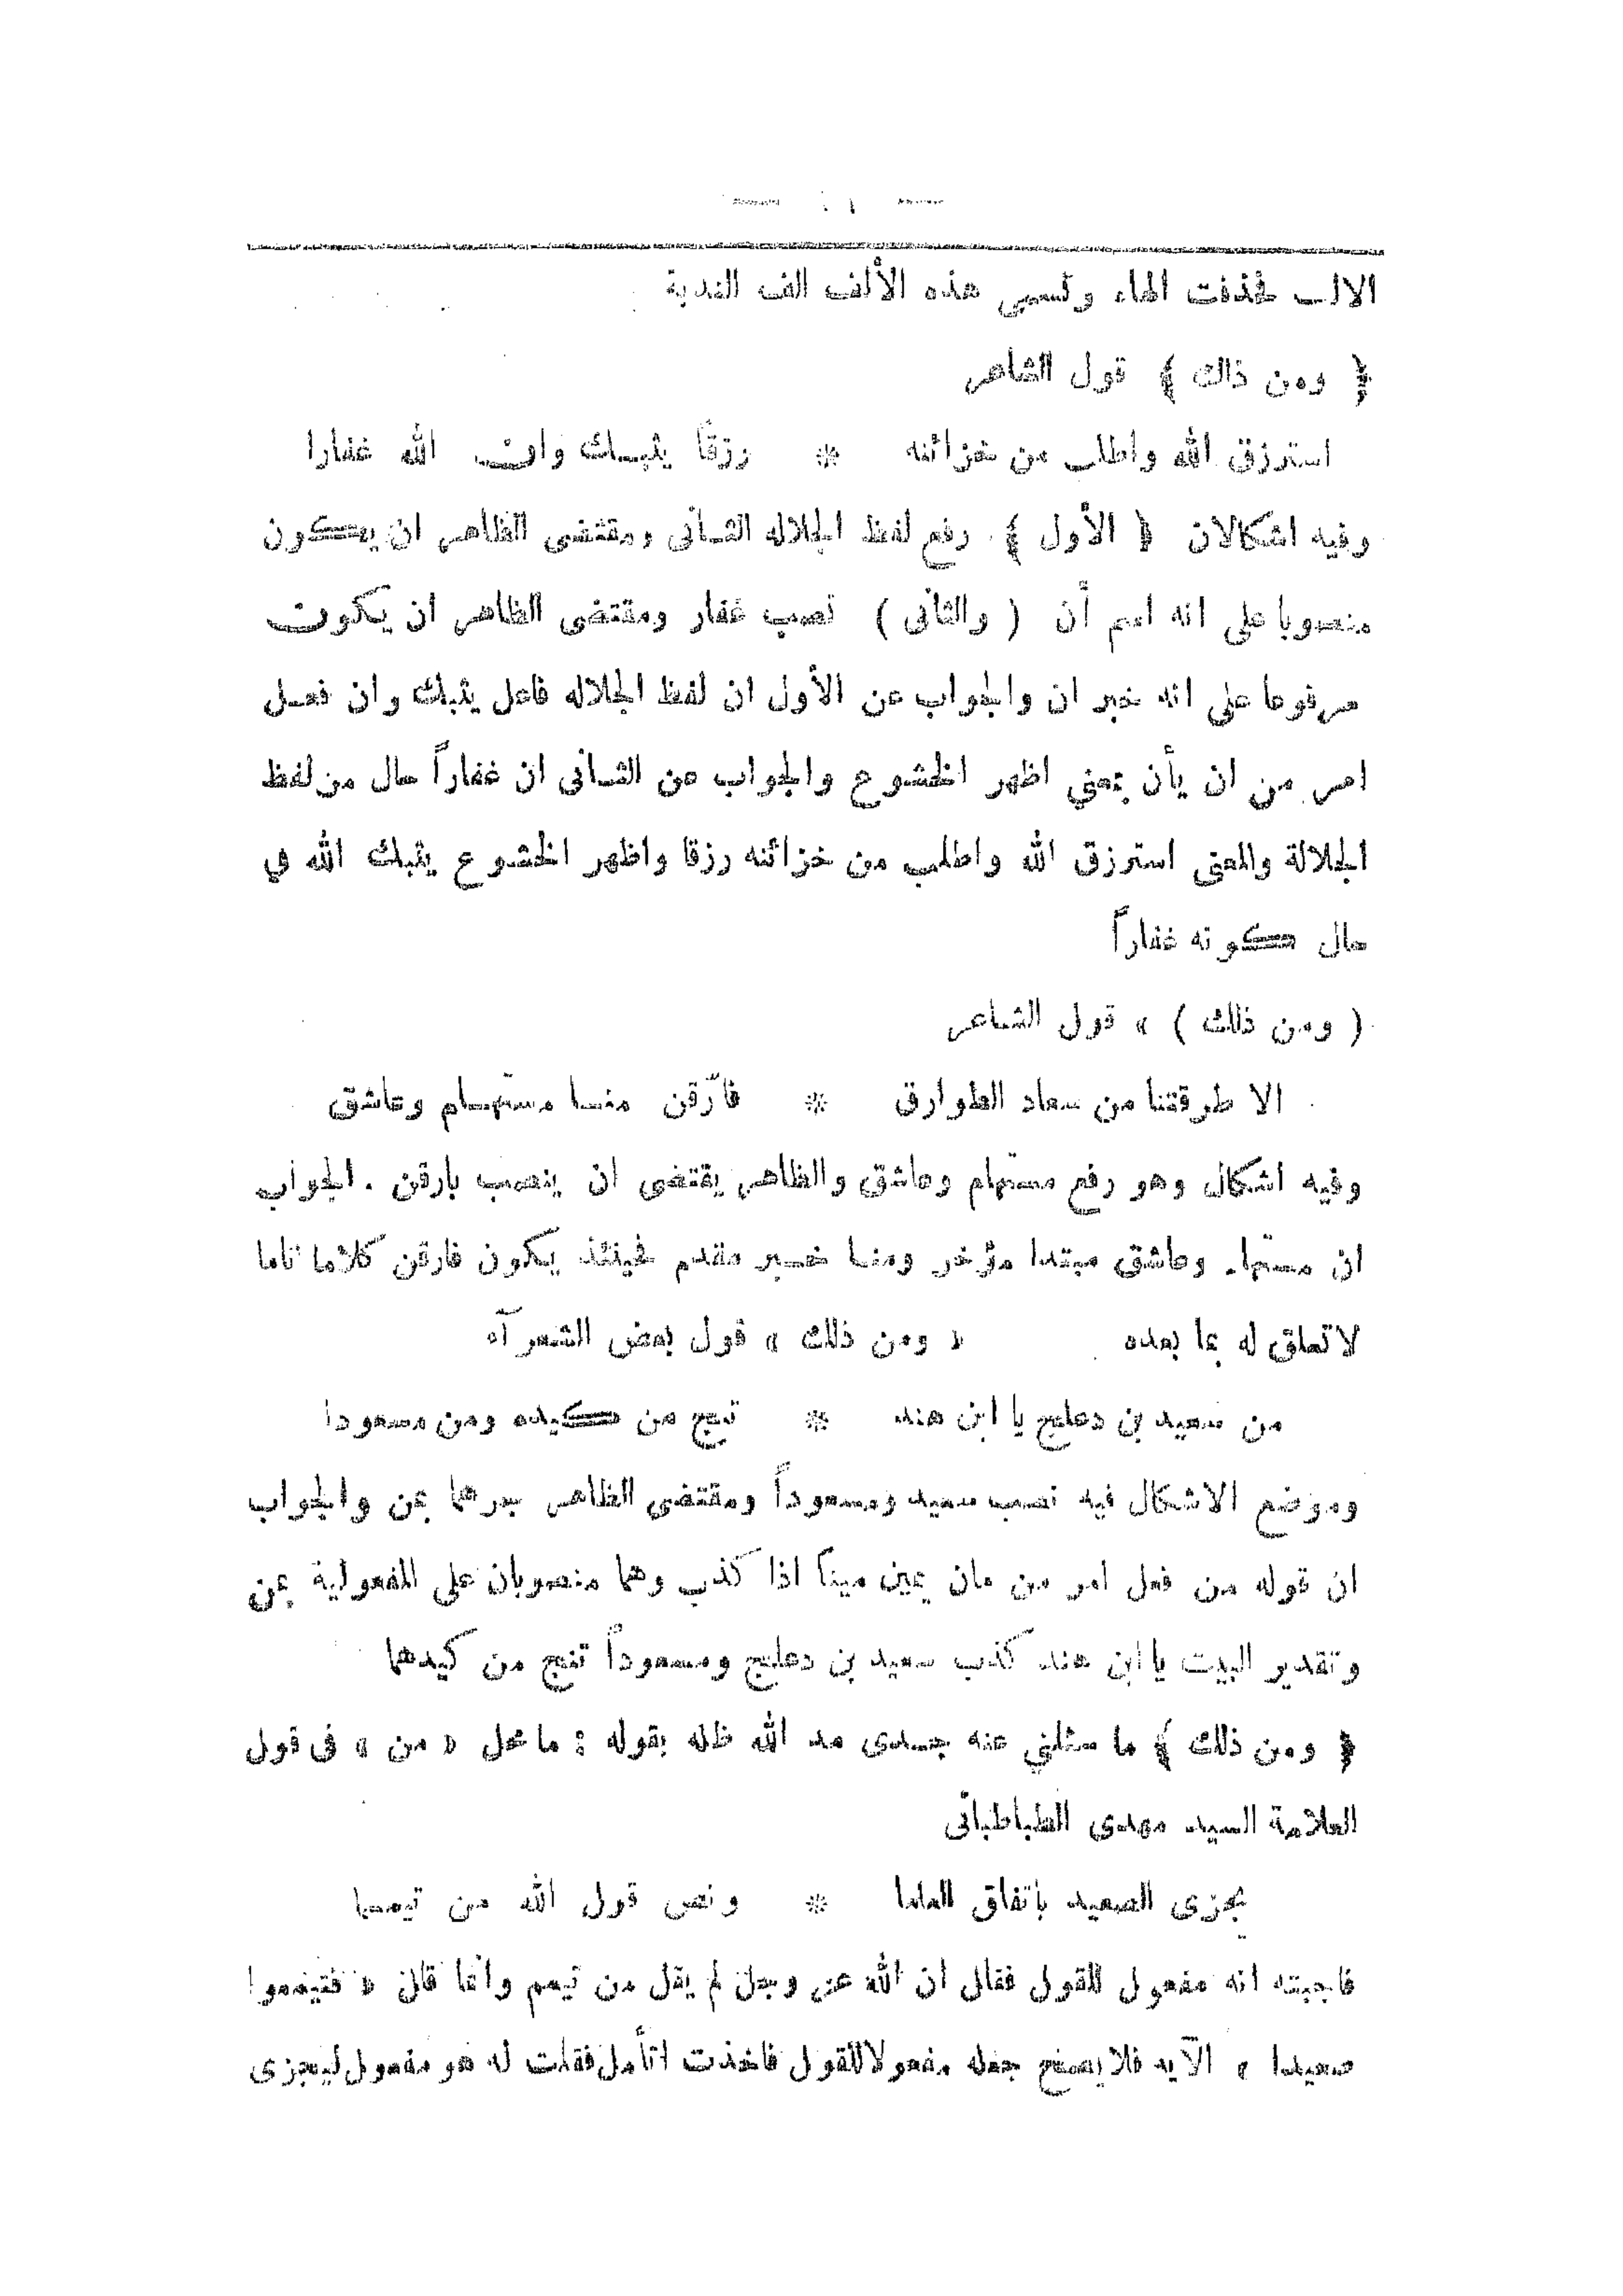 الالف فحذفت الهاء وتسمى هذه الألف الف الندبة
﴿ ومن ذلك ﴾ قول الشاعر
استرزق الله واطلب من خزائنه * رزقاً يثبـك وان الله غفارا
وفيه اشكالان ﴿ الأول ﴾ رفع لفظ الجلاله الثـانى ومقتضى الظاهر ان يكون
منصوبا على انه اسم أن ( والثانى ) نصب غفار ومقتضى الظاهر ان يكون
مرفوعا على انه خبر ان والجواب عن الأول ان لفظ الجلاله فاعل يثبك وان فعـل
امر من ان يأن بمعني اظهر الخشوع والجواب عن الثـانى ان غفاراً حال من لفظ
الجلالة والمعنى استرزق الله واطلب من خزائنه رزقا واظهر الخشوع يثبك الله في
حال كونه غفاراً
( ومن ذلك ) » قول الشـاعر
الا طرقتنا من سعاد الطوارق * فأرّقن منـا مستهـام وعاشق
وفيه اشكال وهو رفع مستهام وعاشق والظاهر يقتضى ان ينصب بارقن . الجواب
ان مستهام وعاشق مبتدا مؤخر ومنـا خـبر مقدم فحينئذ يكون فارقن كلاما تاما
لا تعلق له بما بعده « ومن ذلك » قول بعض الشعرآء
من سعيد بن دعلج يا ابن هند * تنج من كيده ومن مسعودا
وموضع الاشكال فيه نصب سعيد ومسعوداً ومقتضى الظاهر جرهما بمن والجواب
ان قوله من فعل امر من مان يمين ميناً اذا كذب وهما منصوبان على المفعولية بمن
وتقدير البيت يا ابن هند كذب سعيد بن دعلج ومسعوداً تنج من كيدهما
﴿ ومن ذلك ﴾ ما سئلني عنه جـدى مد الله ظله بقوله : ما محل « من » فى قول
العلامة السيد مهدى الطباطبائى
يجزى الصعيد باتفاق العلما * ونص قول الله من تيمما
فاجبته انه مفعول للقول فقال ان الله عز وجل لم يقل من تيمم وانما قال « فتيمموا
صعيدا » الآيه فلا يصح جعله مفعولا للقول فاخذت اتأمل فقلت له هو مفعول ليجزى